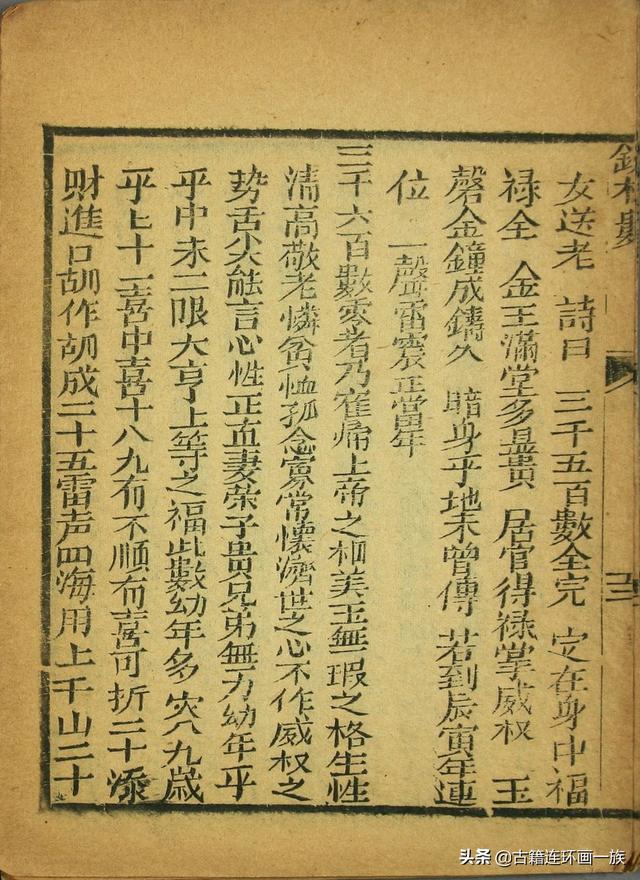 女送老 詩曰 三千五百數全完 定在身中福
禄全 金玉滿堂多显贵 居官得禄掌威权 玉
磬金鐘成鑄久 暗身乎地未曾傳 若到辰寅年運
位 一聲雷震正當年
三千六百數零者乃上帝之相美玉無瑕之格生性
清高敬老憐貧恤孤念寡常懷濟世之心不作威权之
势舌尖能言心性正直妻荣子贵兄弟無力幼年平
平中未二限大亨上等之福此數幼年多灾八九歲
平七十一喜中喜十八九有不順有喜可折二十添
財進口胡作胡成二十五雷声四海用上千山二十
头条 @古籍连环画一族